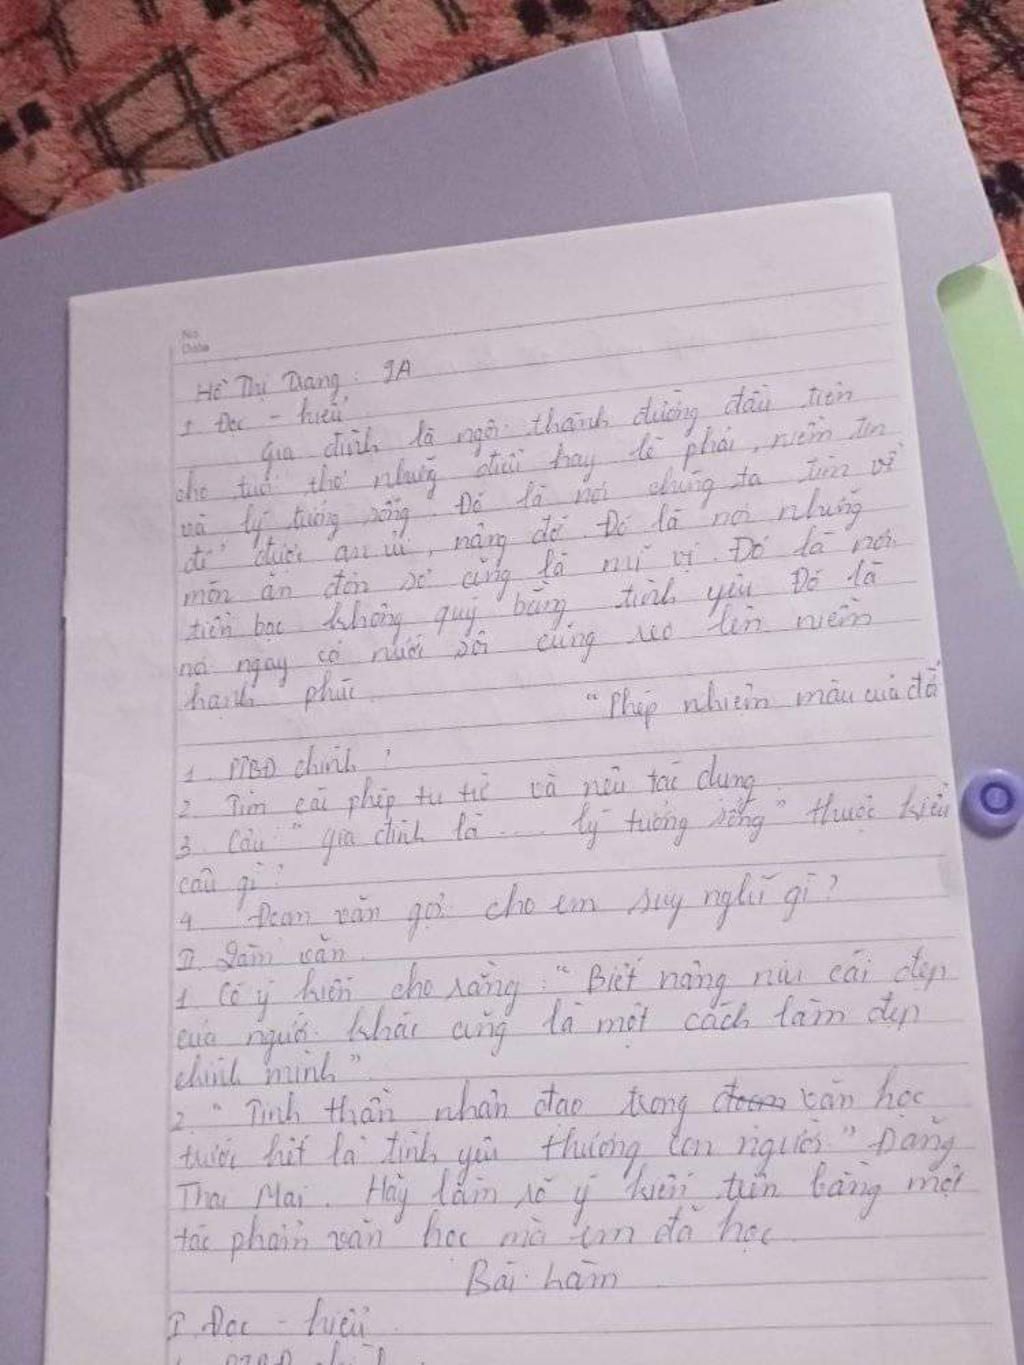 No.
Date
Hồ Thị Trang : 9A
I Đọc - hiểu
Gia đình là ngôi thánh đường đầu tiên
cho tuổi thơ những điều hay lẽ phải, niềm tin
và lý tưởng sống. Đó là nơi chúng ta tìm về
để được an ủi, nâng đỡ. Đó là nơi những
món ăn đơn sơ cũng là mĩ vị. Đó là nơi
tiền bạc không quý bằng tình yêu Đó là
nơi ngay cả nước sôi cũng reo lên niềm
hạnh phúc
"Phép nhiệm màu của đời
1. PTBĐ chính ?
2. Tìm các phép tu từ và nêu tác dụng
3. Câu "Gia đình là .... lý tưởng sống" thuộc kiểu
câu gì ?
4. Đoạn văn gợi cho em suy nghĩ gì ?
II. Làm văn.
1. Có ý kiến cho rằng : "Biết nâng niu cái đẹp
của người khác cũng là một cách làm đẹp
chính mình"
2. "Tinh thần nhân đạo trong văn học
trước hết là tình yêu thương con người" Đặng
Thai Mai. Hãy làm rõ ý kiến trên bằng một
tác phẩm văn học mà em đã học
Bài làm
I. Đọc - hiểu.